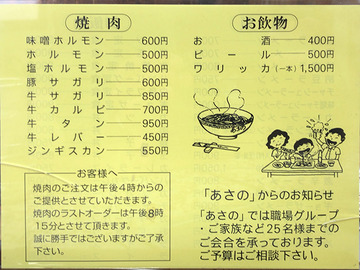 焼肉
味噌ホルモン 600円
ホルモン 500円
塩ホルモン 500円
豚サガリ 600円
牛サガリ 850円
牛カルビ 700円
牛タン 950円
牛レバー 450円
ジンギスカン 550円
お客様へ
焼肉のご注文は午後4時からの
ご提供とさせていただきます。
焼肉のラストオーダーは午後8時
15分とさせて頂きます。
誠に勝手ではございますがご了承
下さい。
お飲物
お酒 400円
ビール 500円
ワリッカ(一本) 1,500円
「あさの」からのお知らせ
「あさの」では職場グループ
・ご家族など25名様までの
ご会合を承っております。
ご予算はご相談下さい。